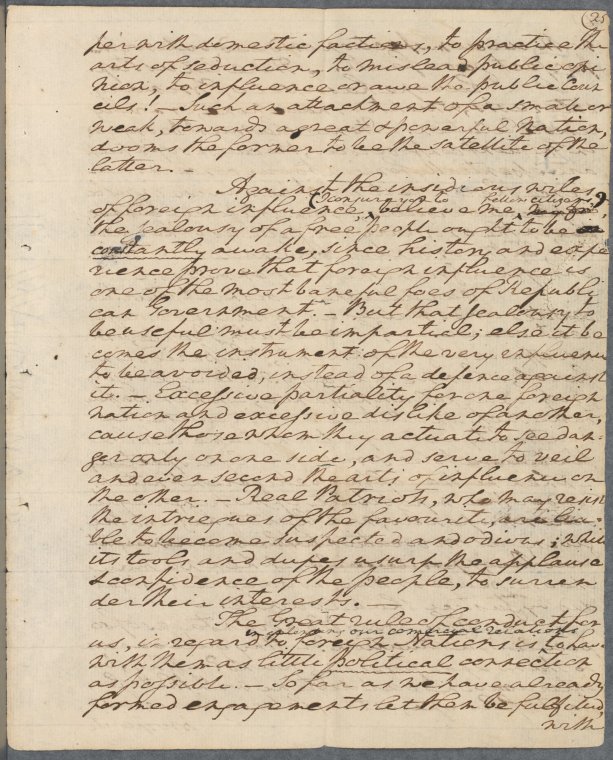 25
per with domestic factions, to practice the
arts of seduction, to mislead public opi
nion, to influence or awe the public Coun
cils! — Such an attachment of a small or
weak, towards a great & powerful Nation,
dooms the former to be the satellite of the
latter. —
Against the insidious wiles
of foreign influence, (I conjure you to believe me fellow citizens,)
the jealousy of a free people ought to be
constantly awake, since history and expe
rience prove that foreign influence is
one of the most baneful foes of Republi
can Government. — But that jealousy to
be useful must be impartial; else it be
comes the instrument of the very influence
to be avoided, instead of a defence against
it. — Excessive partiality for one foreign
nation and excessive dislike of another,
cause those whom they actuate to see dan-
ger only on one side, and serve to veil
and even second the arts of influence on
the other. — Real Patriots, who may resist
the intriegues of the favourite, are lia-
ble to become suspected and odious; while
its tools and dupes usurp the applause
& confidence of the people, to surren
der their interests. —
The Great rule of conduct for
us, in regard to foreign Nations is
in extending our comercial relations
to have
with them as little political connection
as possible. — So far as we have already
formed engagements let them be fulfilled,
with